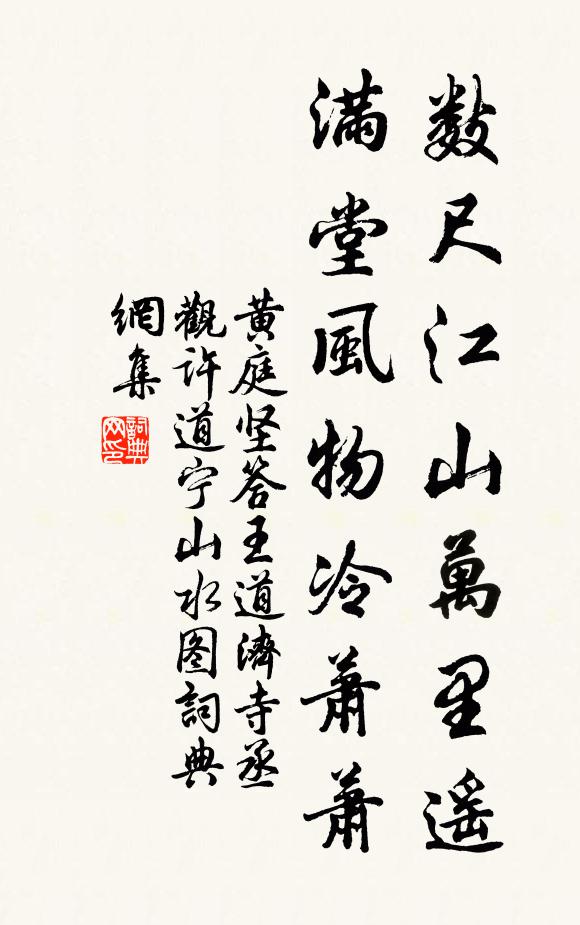 数尺江山萬里遥
滿堂風物冷蕭蕭
黄庭坚答王道濟寺丞
觀许道宁山水图詞典
網集
詞典
网印